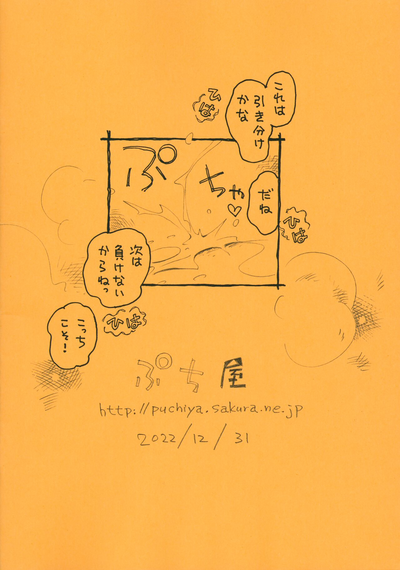 これは
引き分け
かな
ひは
ぷ
ちゃ♡
だね
ひは
次は
負けない
からねっ
ひは
こっち
こそ!
ぷち屋
http://puchiya.sakura.ne.jp
2022/12/31